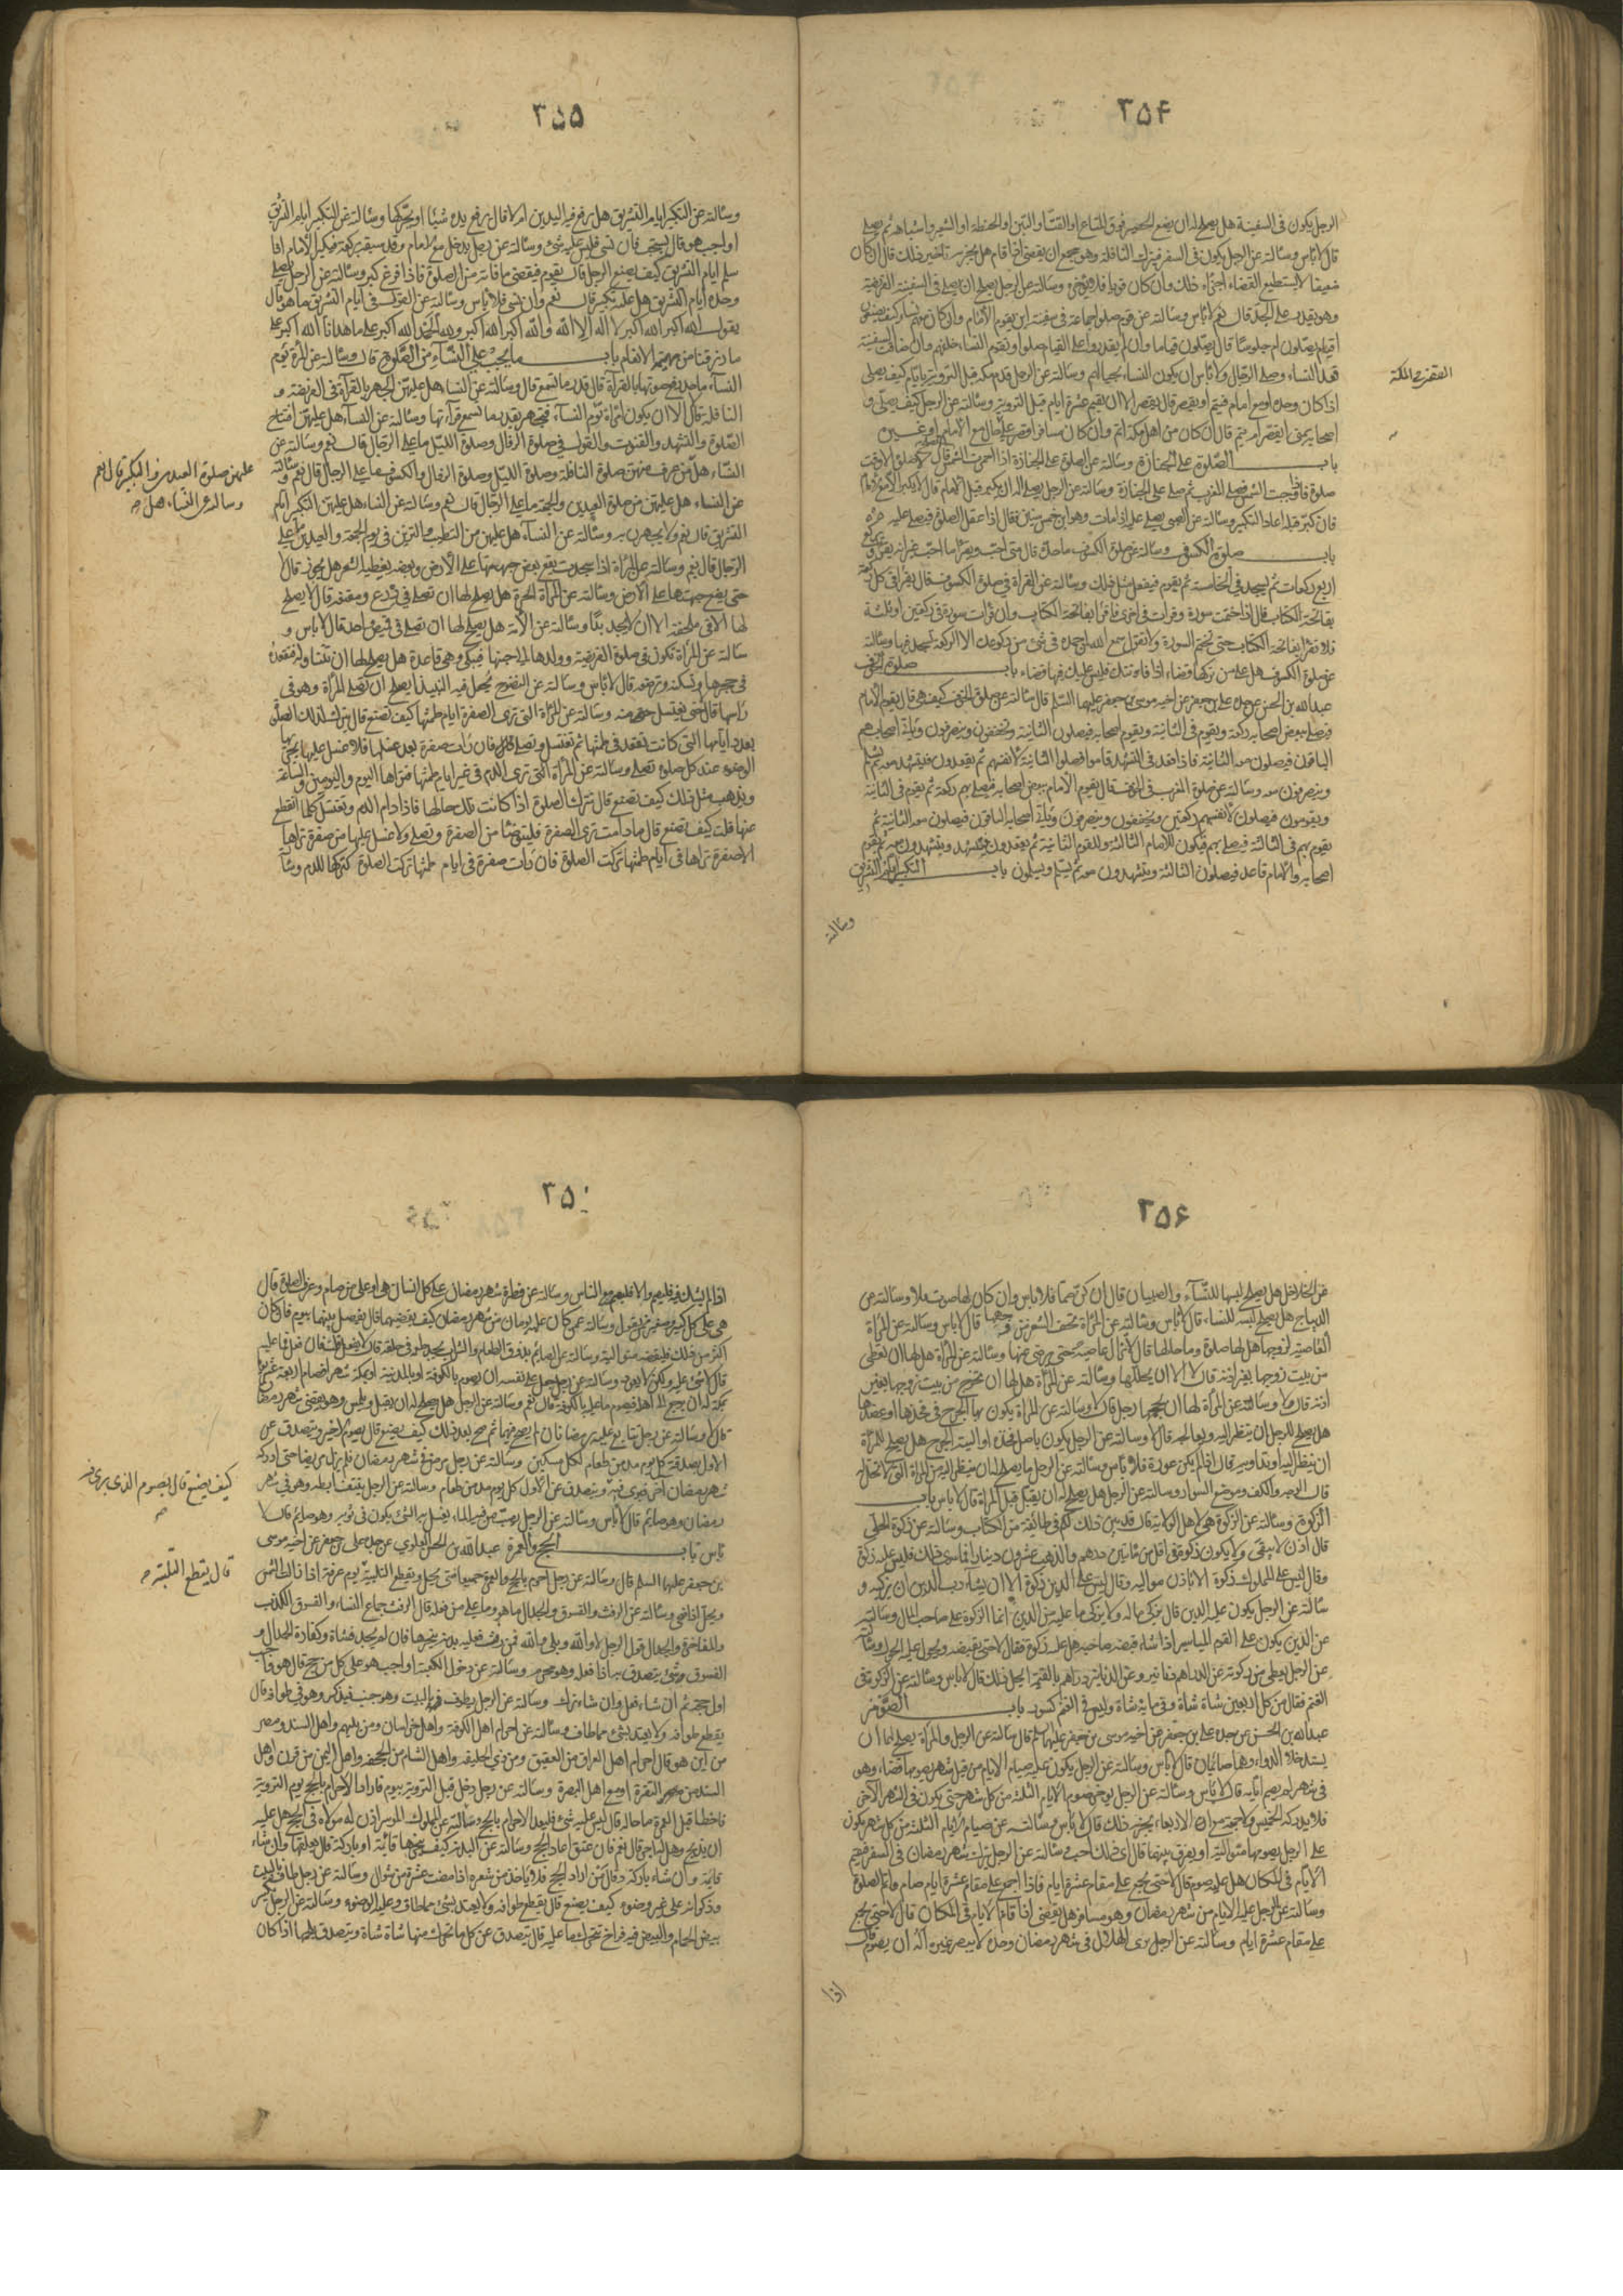 ۳۵۴
الرجل يكون فى السفينة هل يصلح له ان يضع الحصير فوق المتاع او القتّ او التبن او الحنطة او الشعير واشباهه ثم يصلى
قال لا بأس وسألته عن الرجل يكون فى السفر فيترك النافلة وهو مجمع ان يقضى اذا اقام هل يجزيه تأخير ذلك قال ان كان
ضعيفا لا يستطيع القضاء اجزأه ذلك وان كان قويا فلا يؤخره وسألته عن الرجل يصلح ان يصلى فى السفينة الفريضة
وهو يقدر على الجدّ قال نعم لا بأس وسألته عن قوم صلوا جماعة فى سفينة اين يقوم الامام وان كان معهم نساء كيف يصنعون
اقيام يصلّون ام جلوسا قال يصلّون قياما وان لم يقدروا على القيام صلوا جلوسا وتقوم النساء خلفهم وان ضاقت السفينة
قعد النساء وصلى الرجال ولا بأس ان يكون النساء بحيالهم وسألته عن الرجل قدم مكة قبل التروية بايام كيف يصلى
اذا كان وحده او مع امام فيتم او يقصر قال يقصر الا ان يقيم عشرة ايام قبل التروية وسألته عن الرجل كيف يصلى و
اصحابه بمنى ايقصر ام يتم قال ان كان من اهل مكة اتم وان كان مسافرا قصر على كل حال مع الامام او غيره
باب الصّلوة على الجنازة وسألته عن الصلوة على الجنازة اذا احمرت الشمس قال لا صلوة الا وقت
صلوة فاذا وجبت الشمس فصلى المغرب ثم صلى على الجنازة وسألته عن الرجل يصلى له ان يكبر قبل الامام قال لا يكبر الا مع الامام
فان كبّر قبله اعاد التكبير وسألته عن الصبى يصلى عليه اذا مات وهو ابن خمس سنين فقال اذا عقل الصلوة فيصلى عليه
باب صلوة الكسوف وسألته عن صلوة الكسوف ما حدّه قال متى احبّ ويقرأ ما احبّ غير انه يقرأ و يركع
اربع ركعات ثم يسجد فى الخامسة ثم يقوم فيفعل مثل ذلك وسألته عن القرأة فى صلوة الكسوف قال يقرأ فى كل ركعة
بفاتحة الكتاب قال اذا ختمت سورة وقرأت فى اخرى فاقرأ بفاتحة الكتاب وان قرأت سورة فى ركعتين او ثلثة
فلا تقرأ بفاتحة الكتاب حتى تختم السورة ولا تقول سمع الله لمن حمده فى شئ من ركوعك الا الركعة تسجد فيها وسألته
عن صلوة الكسوف هل على من تركها قضاء اذا فاتتك فليس عليك فيها قضاء باب صلوة الخوف
عبد الله بن الحسن عن جده على بن جعفر عن اخيه موسى بن جعفر عليهما السّلم قال سألته عن صلوة الخوف كيف هى قال يقوم الامام
فيصلى ببعض اصحابه ركعة ويقوم فى الثانية ويقوم اصحابه فيصلون الثانية ويخففون وينصرفون ويأتى اصحابهم
الباقون فيصلون معه الثانية فاذا قعد فى التشهد قاموا فصلوا الثانية لانفسهم ثم يقعدون فيتشهدون معه ثم يسلم
وينصرفون معه وسألته عن صلوة المغرب فى الخوف قال يقوم الامام ببعض اصحابه فيصلى بهم ركعة ثم يقوم فى الثانية
ويقومون فيصلون لانفسهم ركعتين ويخففون وينصرفون ويأتى اصحابه الباقون فيصلون معه الثانية ثم
يقوم بهم فى الثالثة فيصلى بهم فيكون للامام الثالثة وللقوم الثانية ثم يقعدون فيتشهد ويتشهدون معه ثم يقوم
اصحابه والامام قاعد فيصلون الثالثة ويتشهدون معه ثم يسلم ويسلمون باب التكبير ايام التشريق
وسألته
۳۵۵
وسألته عن التكبير ايام التشريق هل يرفع فيه اليدين ام لا قال يرفع يده شيئا او يحركها وسألته عن التكبير ايام التشريق
اواجب هو قال يستحب فان نسى فليس عليه شئ وسألته عن رجل يدخل مع الامام وقد سبقه بركعة فيكبر الامام اذا
سلم ايام التشريق كيف يصنع الرجل قال يقوم فيقضى ما فاته من الصلوة فاذا فرغ كبر وسألته عن الرجل يصلى
وحده ايام التشريق هل عليه تكبير قال نعم وان نسى فلا بأس وسألته عن القول فى ايام التشريق ما هو قال
يقول الله اكبر الله اكبر لا اله الا الله والله اكبر الله اكبر ولله الحمد الله اكبر على ما هدانا الله اكبر على
ما رزقنا من بهيمة الانعام باب ما يجب على النّسآء من الصّلوة قال وسألته عن المرأة تؤم
النسآء ما حد رفع صوتها بالقرأة قال قدر ما تسمع قال وسألته عن النساء هل عليهن الجهر بالقرأة فى الفريضة و
النافلة قال لا الا ان يكون امرأة تؤم النسآء فتجهر بقدر ما تسمع قرآءتها وسألته عن النسآء هل عليهن افتتاح
الصّلوة والتشهد والقنوت والقول فى صلوة الزوال وصلوة الليل ما على الرجال قال نعم وسألته عن
النسّاء هل على من عرف منهن صلوة النافلة وصلوة الليل وصلوة الزوال والكسوف ما على الرجال قال نعم وسألته
عن النساء هل عليهن من صلوة العيدين والجمعة ما على الرجال قال نعم وسألته عن النساء هل عليهن التكبير ايام
التشريق قال نعم ولا يجهرن به وسألته عن النسآء هل عليهن من التطيب والتزين فى يوم الجمعة والعيدين ما على
الرجال قال نعم وسألته عن المرأة اذا سجدت يقع بعض جبهتها على الارض وبعضه يغطيه الشعر هل يجوز قال لا
حتى يضع جبهتها على الارض وسألته عن المرأة الحرة هل يصلح لها ان تصلى فى درع ومقنعة قال لا يصلح
لها الا فى ملحفة الا ان لا يجد بدّا وسألته عن الامة هل يصلح لها ان تصلى فى قميص واحد قال لا بأس و
سألته عن المرأة تكون فى صلوة الفريضة وولدها الى جنبها فيبكى وهى قاعدة هل يصلح لها ان تتناوله فتقعده
فى حجرها وتسكته وترضعه قال لا بأس وسألته عن النضوح يجعل فيه النبيذ ايصلح ان تصلى المرأة وهو فى
رأسها قال لا حتى يغتسل منه وسألته عن المرأة التى ترى الصفرة ايام طمثها كيف تصنع قال يترك لذلك الصلوة
بعدد ايامها التى كانت تقعد فى طمثها ثم تغتسل وتصلى فان رأت صفرة بعد غسلها فلا غسل عليها يجزيها
الوضوء عند كل صلوة تصلى وسألته عن المرأة التى ترى الدم فى غير ايام طمثها فتراها اليوم واليومين والساعة
ويذهب مثل ذلك كيف تصنع قال تترك الصلوة اذا كانت تلك حالها فاذا دام الدم وتغتسل كلما انقطع
عنها قلت كيف تصنع قال ما دامت ترى الصفرة فليتوضأ من الصفرة وتصلى ولا غسل عليها من صفرة تراها
الا صفرة تراها فى ايام طمثها تركت الصلوة فان رأت صفرة فى ايام طمثها تركت الصلوة كتركها للدم وسأل
عليهن صلوة العيدين والتكبير قال نعم
وسألته عن النساء هل
۳۵۶
عن الخلاخل هل يصلح لبسها للنّسآء والصبيان قال ان كن صما فلا بأس وان كان لها صوت فلا وسألته عن
الديباج هل يصلح لبسه للنساء قال لا بأس وسألته عن المرأة تحف الشعر من وجهها قال لا بأس وسألته عن المرأة
العاصية لزوجها هل لها صلوة وما حالها قال لا تزال عاصية حتى يرضى عنها وسألته عن المرأة هل لها ان تعطى
من بيت زوجها بغير اذنه قال لا الا ان يحللها وسألته عن المرأة هل لها ان تخرج من بيت زوجها بغير
اذنه قال لا وسألته عن المرأة لها ان يحجمها رجل قال لا وسألته عن المرأة يكون بها الجرح فى فخذها او عضدها
هل يصلح للرجل ان ينظر اليه ويعالجه قال لا وسألته عن الرجل يكون باصل فخذه او اليته الجرح هل يصلح للمرأة
ان ينظر اليه او تداويه قال اذا لم يكن عورة فلا بأس وسألته عن الرجل ما يصلح له ان ينظر اليه من المرأة التى لا تحل له
قال الوجه والكف وموضع السوار وسألته عن الرجل هل يصلح له ان يقبل قبل المرأة قال لا بأس باب
الزكوة وسألته عن الزكوة هى لاهل الولاية قال قد بين ذلك لكم فى طائفة من الكتاب وسألته عن زكوة الحلى
قال اذن لا يبقى ولا يكون زكوة فى اقل من مأتين درهم والذهب عشرون دينارا فما سوى ذلك فليس عليه زكوة
وقال ليس على المملوك زكوة الا باذن مواليه وقال ليس على الدين زكوة الا ان يشاء رب الدين ان يزكيه و
سألته عن الرجل يكون عليه الدين قال يزكى ماله ولا يزكى ما عليه من الدين انما الزكوة على صاحب المال وسألته
عن الدين يكون على القوم المياسير اذا شاء قبضه صاحبه هل عليه زكوة فقال لا حتى يقبضه ويحول عليه الحول وسأل
عن الرجل يعطى من زكوته عن الدراهم دنانير وعن الدنانير دراهم بالقيمة ايحل ذلك قال لا بأس وسألته عن الزكوة فى
الغنم فقال من كل اربعين شاة شاة وفى مائة شاة وليس فى الغنم كسور باب الصّوم
عبد الله بن الحسن عن جده على بن جعفر عن اخيه موسى بن جعفر عليهما السلم قال سألته عن الرجل والمرأة يصلح لهما ان
يستدخلا الدواء وهما صائمان قال لا بأس وسألته عن الرجل يكون عليه صيام الايام من قبل شهر يصومها قضاء وهو
فى شهر لم يصم ايامه قال لا بأس وسألته عن الرجل يؤخر صوم الايام الثلثة من كل شهر حتى يكون فى الشهر الآخر
فلا يدركه الخميس ولا جمعة مع الاربعاء يجزيه ذلك قال لا بأس وسألته عن صيام الايام الثلثة من كل شهر يكون
على الرجل يصومها متوالية او يفرق بينها قال اى ذلك احب وسألته عن الرجل يترك شهر رمضان فى السفر فيقيم
الايام فى المكان هل عليه صوم قال لا حتى يجمع على مقام عشرة ايام فاذا اجمع على مقام عشرة ايام صام واتم الصلوة
وسألته عن الرجل عليه الايام من شهر رمضان وهو مسافر هل يقضى اذا اقام الايام فى المكان قال لا حتى يجمع
على مقام عشرة ايام وسألته عن الرجل يرى الهلال فى شهر رمضان وحده لا يبصر غيره اله ان يصوم قال
اذا
۳۵
اذا لم يشك فيه فليصم والا فليصم مع الناس وسألته عن فطرة شهر رمضان على كل انسان هى او على من صام وعرف الصلوة قال
هى على كل كبير وصغير ممن يعول وسألته عمن كان عليه يومان من شهر رمضان كيف يقضيهما قال يفصل بينهما بيوم فان كان
اكثر من ذلك فليقضه متوالية وسألته عن الصائم يذوق الطعام والشراب يجد طعمه فى حلقه قال لا يفعل قلت فان فعل فما عليه
قال لا شئ عليه ولكن لا يعود وسألته عن رجل جعل على نفسه ان يصوم بالكوفة او بالمدينة او بمكة شهرا فصام اربعة عشر يوما
بمكة له ان يرجع الى اهله فيصوم ما عليه بالكوفة قال نعم وسألته عن الرجل هل يصلح له ان يقبل ويلمس وهو يقضى شهر رمضان
قال لا وسألته عن رجل تتابع عليه رمضانان لم يصح فيهما ثم صح بعد ذلك كيف يصنع قال يصوم الاخير ويتصدق عن
الاول بصدقة كل يوم مد من طعام لكل مسكين وسألته عن رجل مرض فى شهر رمضان فلم يزل مريضا حتى ادركه
شهر رمضان آخر فبرئ فيه ويتصدق عن الاول كل يوم مد من طعام وسألته عن الرجل ينتف ابطه وهو فى شهر
رمضان وهو صائم قال لا بأس وسألته عن الرجل يصب من فيه الماء يغسل به الشئ يكون فى ثوبه وهو صائم قال لا
بأس باب الحج والعمرة عبد الله بن الحسن العلوى عن جده على بن جعفر عن اخيه موسى
بن جعفر عليهما السلم قال وسألته عن رجل احرم بالحج والعمرة جميعا متى يحل ويقطع التلبية يوم عرفة اذا زالت الشمس
ويحل اذا ضحى وسألته عن الرفث والفسوق والجدال ما هو وما على من فعله قال الرفث جماع النساء والفسوق الكذب
والمفاخرة والجدال قول الرجل لا والله وبلى والله فمن رفث فعليه بدنة ينحرها فان لم يجد فشاة وكفارة الجدال و
الفسوق شئ يتصدق به اذا فعله وهو محرم وسألته عن دخول الكعبة اواجب هو على كل من حج قال هو واجب
اول حجة ثم ان شاء فعل وان شاء ترك وسألته عن الرجل يطوف بالبيت وهو جنب فيذكر وهو فى طوافه قال
يقطع طوافه ولا يعتد بشئ مما طاف وسألته عن احرام اهل الكوفة واهل خراسان ومن يليهم واهل السند ومصر
من اين هو قال احرام اهل العراق من العقيق ومن ذى الحليفة واهل الشام من الجحفة واهل اليمن من قرن واهل
السند من البصرة او مع اهل البصرة وسألته عن رجل دخل قبل التروية بيوم فاراد الاحرام بالحج يوم التروية
فاخطأ قبل العمرة ما حاله قال ليس عليه شئ فليعد الاحرام بالحج وسألته عن المملوك الموسر اذن له مولاه فى الحج هل عليه
ان يذبح وهل له اجر قال نعم فان عتق اعاد الحج وسألته عن البدنة كيف ينحرها قائمة او باركة قال يعقلها وان شاء
قائمة وان شاء باركة وقال من اراد الحج فلا يأخذ من شعره اذا مضت عشرة من شوال وسألته عن رجل طاف بالبيت
وذكر انه على غير وضوء كيف يصنع قال يقطع طوافه ولا يعتد بشئ مما طاف وعليه الوضوء وسألته عن الرجل كسر
بيض الحمام والبيض فيه فراخ تتحرك ما عليه قال يتصدق عن كل ما تحرك منها شاة شاة ويتصدق بلحمها اذا كان
كيف يصنع قال يصوم الذى برئ فيه
قال يقطع التلبية